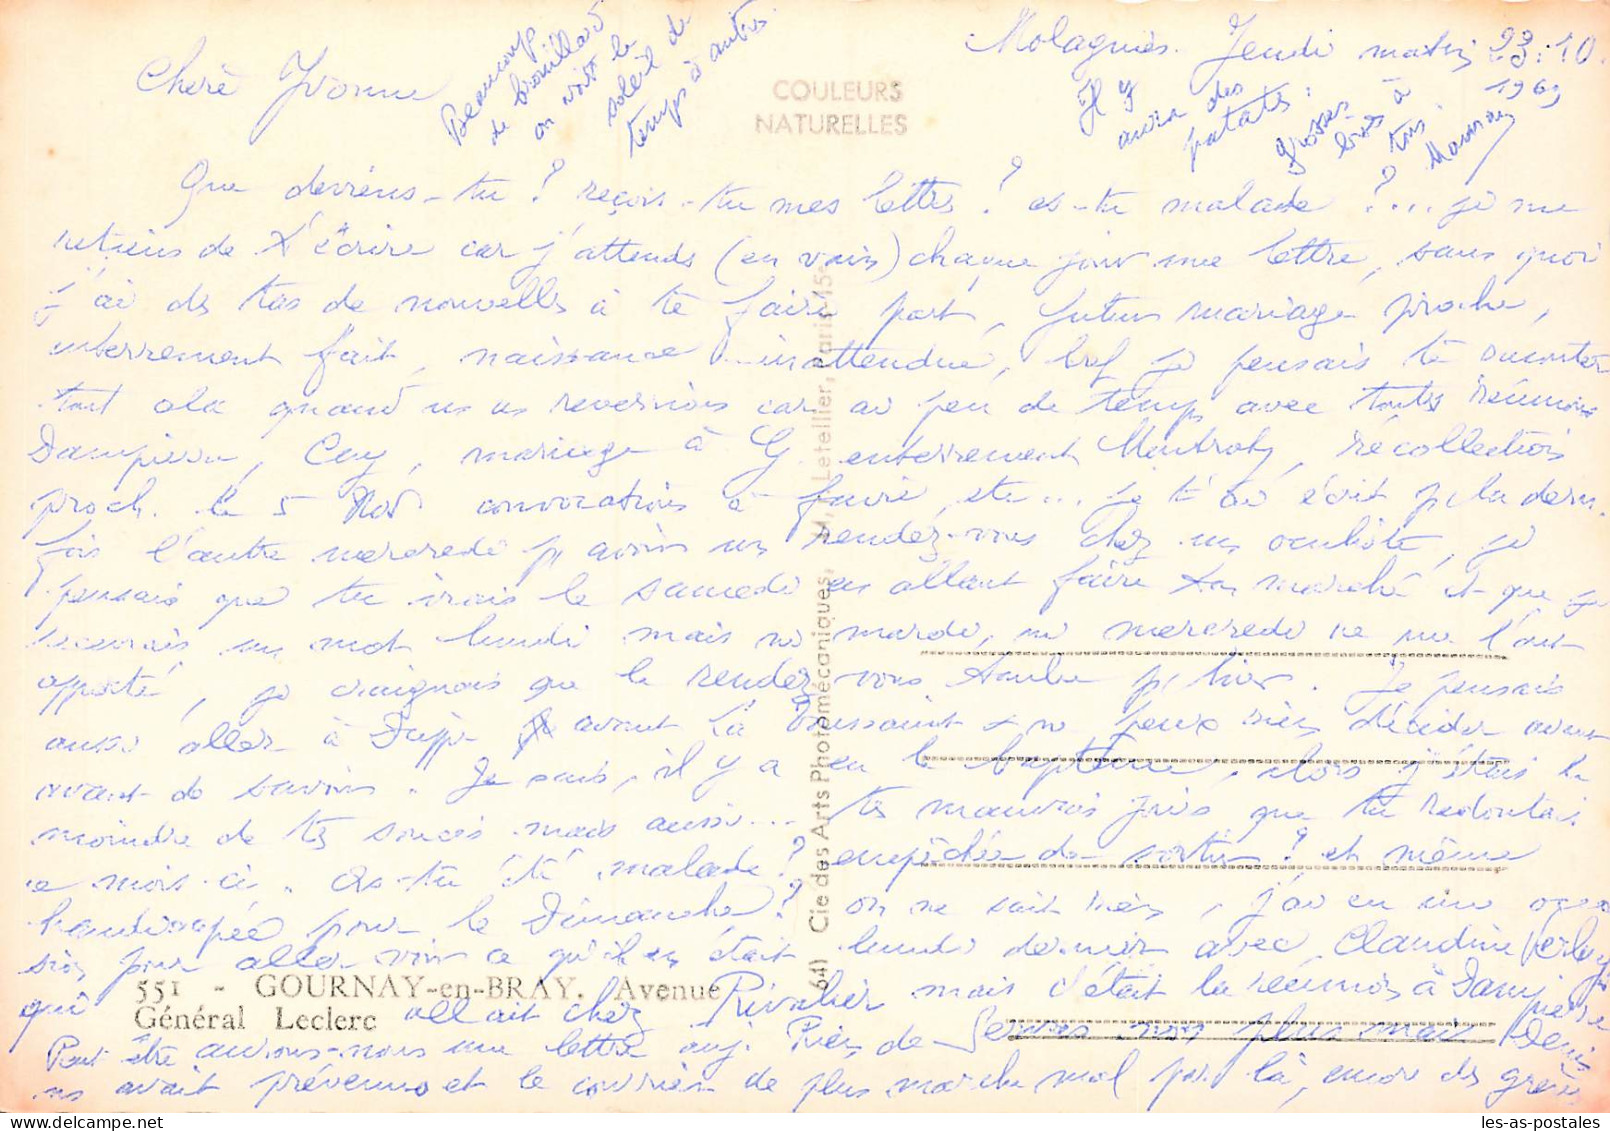 Molagnies. Jeudi matin 23.10.
1969
Chère Yvonne
Beaucoup
de brouillard
on voit le
soleil de
temps à autres.
COULEURS
NATURELLES
Il y
aura des
patates :
grosses
bises à
tous.
Que deviens-tu ? reçois-tu mes lettres ? es-tu malade ?.... je me
retiens de t'écrire car j'attends (en vain) chaque jour une lettre, sans quoi
j'ai des tas de nouvelles à te faire part, futur mariage proche,
enterrement fait, naissance inattendue, bref je pensais te raconter
tout cela quand ns ns reverrions car ai peu de temps avec toutes réunions
Dampierre, Cuy, mariage à G. enterrement Montroty, récollection
proch. le 5 Nov convocations à faire, etc... je t'ai écrit p. la dern.
fois l'autre mercredi p. avoir un rendez-vous chez un oculiste, je
pensais que tu irais le samedi en allant faire ton marché et que je
recevrais un mot lundi mais ni mardi, ni mercredi ne me l'ont
apporté, je craignais que le rendez-vous tombe p. hier. Je pensais
aussi aller à Dieppe avant la Toussaint & ne peux rien décider avant
avant de savoir. Je sais, il y a eu le baptême, alors j'étais la
moindre de tes soucis mais aussi... tes mauvais jours que tu redoutais
ce mois-ci. As-tu été malade ? empêchée de sortir ? et même
handicapée pour le Dimanche ? on ne sait rien, j'ai eu une occa
sion pour aller voir ce qu'il en était lundi dernier avec Claudine
qui allait chez Rivalier mais c'était la réunion à Dampierre
Peut être aurons-nous une lettre auj. Rien de non plus mais Denis
ns avait prévenus et le courrier de plus marche mal par là, encor des grèves
551 - GOURNAY-en-BRAY. Avenue
Général Leclerc
64) Cie des Arts Photomécaniques, M. Letellier, Paris-15e
les-as-postales.com